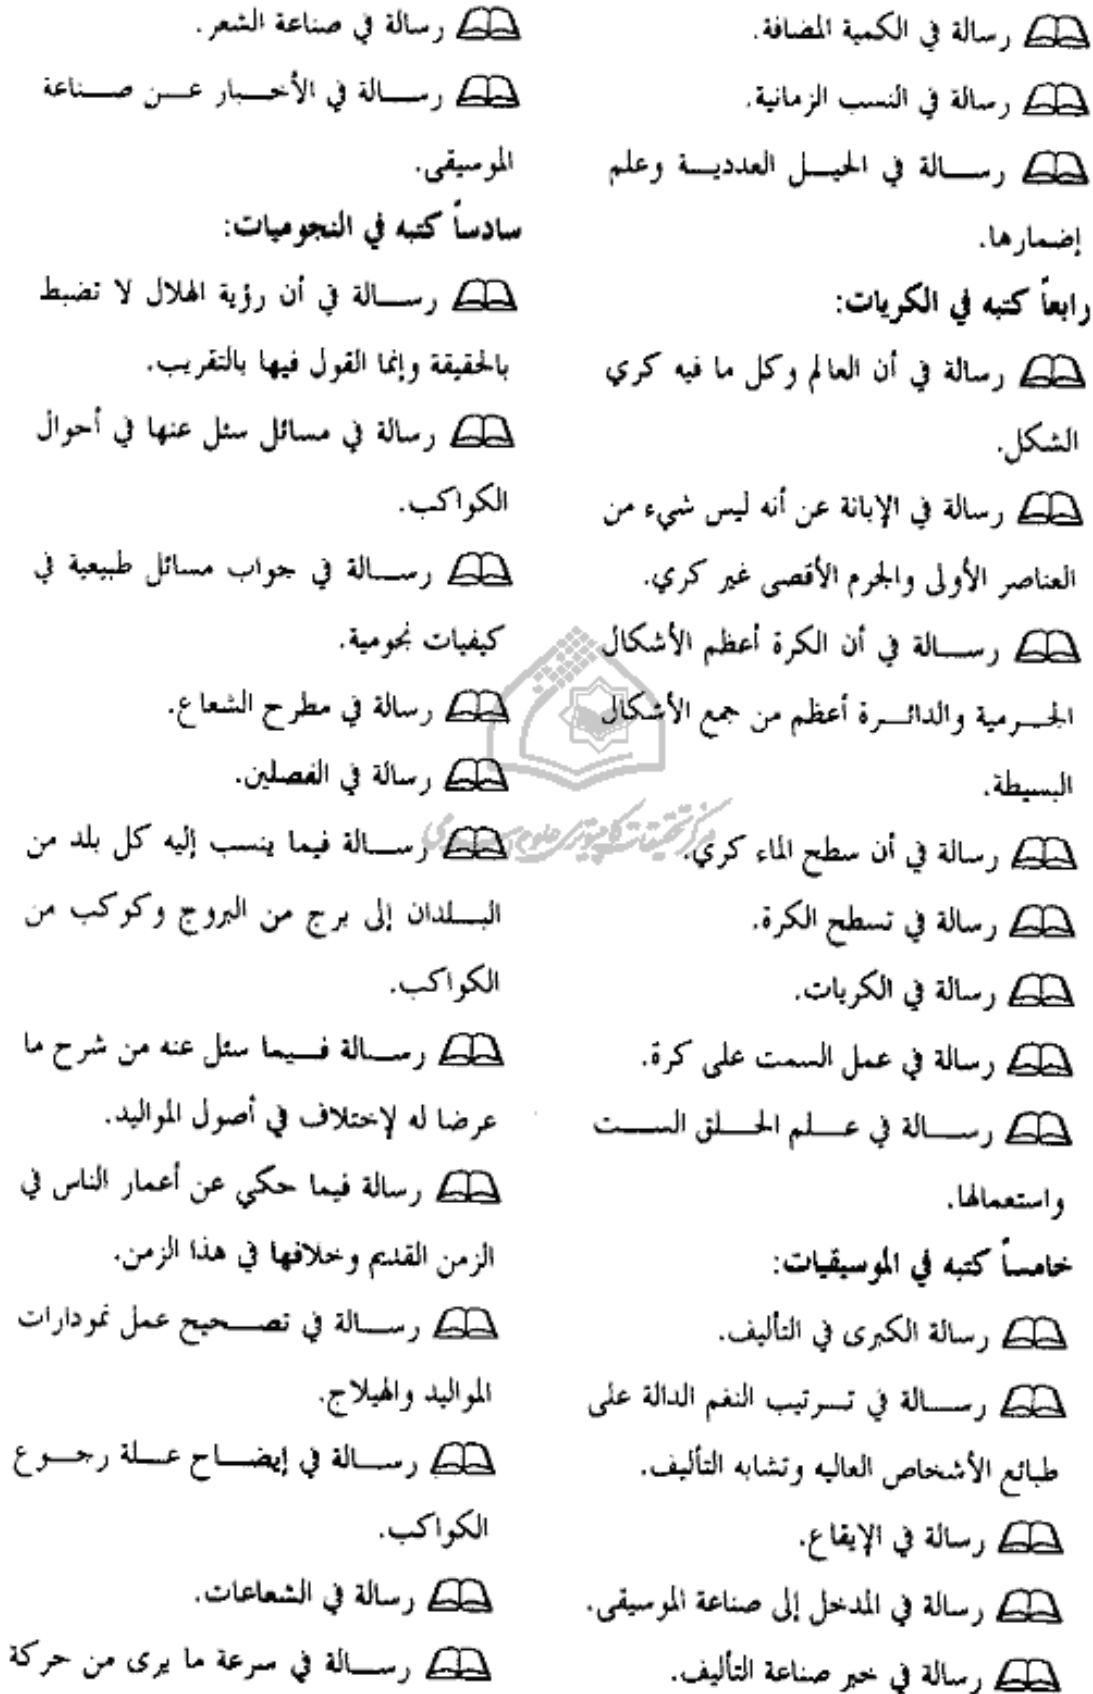 رسالة في الكمية المضافة.
رسالة في النسب الزمانية.
رسالة في الحيل العددية وعلم
إضمارها.
رابعاً كتبه في الكريات:
رسالة في أن العالم وكل ما فيه كري
الشكل.
رسالة في الإبانة عن أنه ليس شيء من
العناصر الأولى والجرم الأقصى غير كري.
رسالة في أن الكرة أعظم الأشكال
الجرمية والدائرة أعظم من جمع الأشكال
البسيطة.
رسالة في أن سطح الماء كري.
رسالة في تسطح الكرة.
رسالة في الكريات.
رسالة في عمل السمت على كرة.
رسالة في علم الحلق الست
واستعمالها.
خامساً كتبه في الموسيقيات:
رسالة الكبرى في التأليف.
رسالة في ترتيب النغم الدالة على
طبائع الأشخاص العاليه وتشابه التأليف.
رسالة في الإيقاع.
رسالة في المدخل إلى صناعة الموسيقى.
رسالة في خبر صناعة التأليف.
رسالة في صناعة الشعر.
رسالة في الأخبار عن صناعة
الموسيقى.
سادساً كتبه في النجوميات:
رسالة في أن رؤية الهلال لا تضبط
بالحقيقة وإنما القول فيها بالتقريب.
رسالة في مسائل سئل عنها في أحوال
الكواكب.
رسالة في جواب مسائل طبيعية في
كيفيات نجومية.
رسالة في مطرح الشعاع.
رسالة في الفصلين.
رسالة فيما ينسب إليه كل بلد من
البلدان إلى برج من البروج وكوكب من
الكواكب.
رسالة فيما سئل عنه من شرح ما
عرضا له لإختلاف في أصول المواليد.
رسالة فيما حكي عن أعمار الناس في
الزمن القديم وخلافها في هذا الزمن.
رسالة في تصحيح عمل نمودارات
المواليد والهيلاج.
رسالة في إيضاح علة رجوع
الكواكب.
رسالة في الشعاعات.
رسالة في سرعة ما يرى من حركة